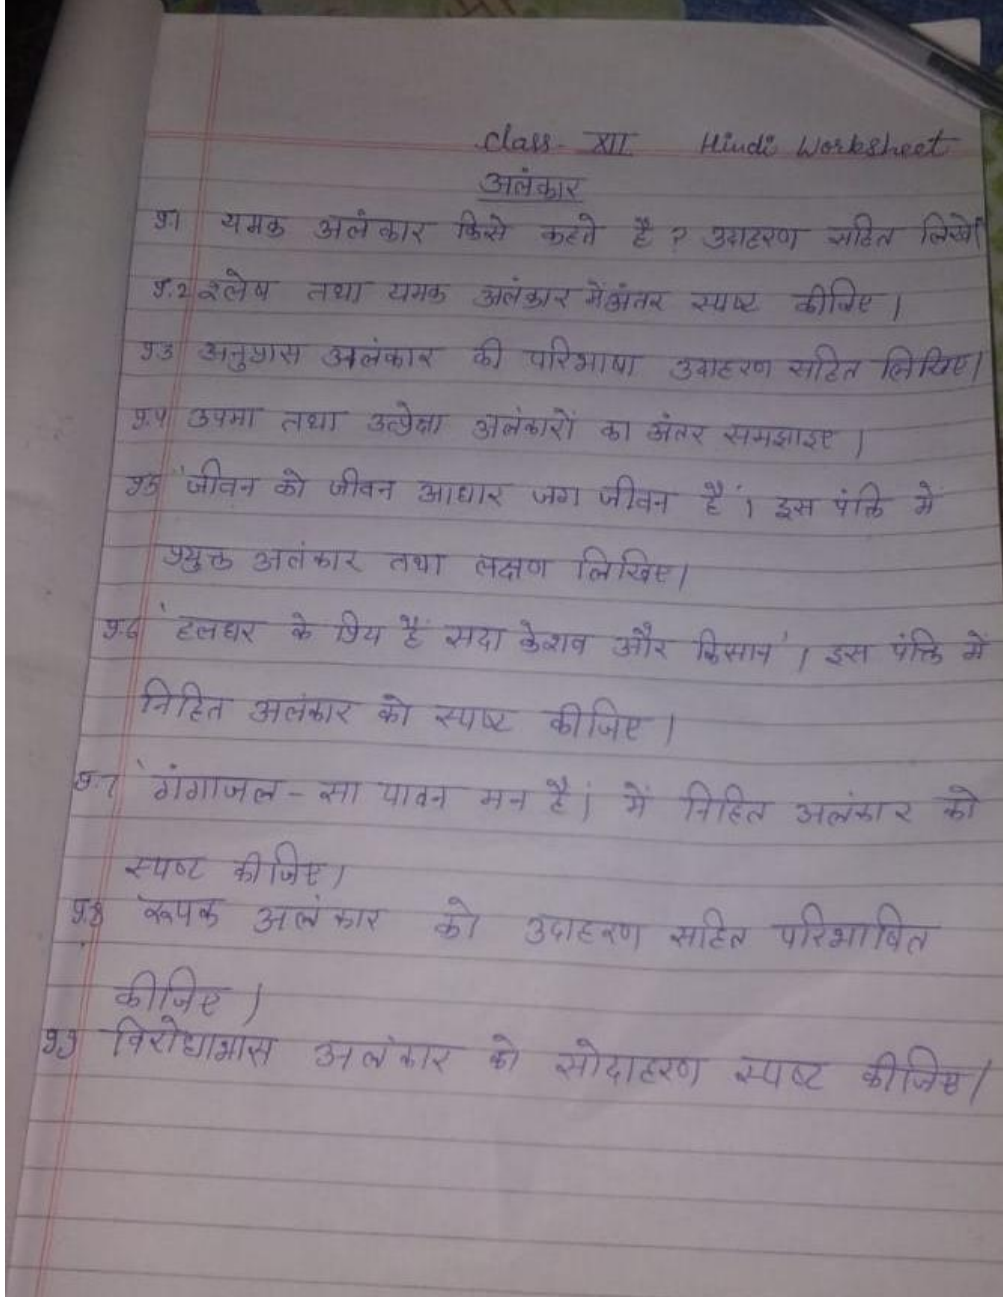 Class - XII Hindi Worksheet
अलंकार
प्र.1 यमक अलंकार किसे कहते है ? उदाहरण सहित लिखें
प्र.2 श्लेष तथा यमक अलंकार में अंतर स्पष्ट कीजिए ।
प्र3 अनुप्रास अलंकार की परिभाषा उदाहरण सहित लिखिए।
प्र.4 उपमा तथा उत्प्रेक्षा अलंकारों का अंतर समझाइए ।
प्र5 'जीवन को जीवन आधार जग जीवन है'। इस पंक्ति में
प्रयुक्त अलंकार तथा लक्षण लिखिए।
प्र.6 'हलधर के प्रिय हैं सदा केशव और किसान' । इस पंक्ति में
निहित अलंकार को स्पष्ट कीजिए ।
प्र.7 'गंगाजल - सा पावन मन है'। में निहित अलंकार को
स्पष्ट कीजिए।
प्र.8 रूपक अलंकार को उदाहरण सहित परिभाषित
कीजिए ।
प्र9 विरोधाभास अलंकार को सोदाहरण स्पष्ट कीजिए।